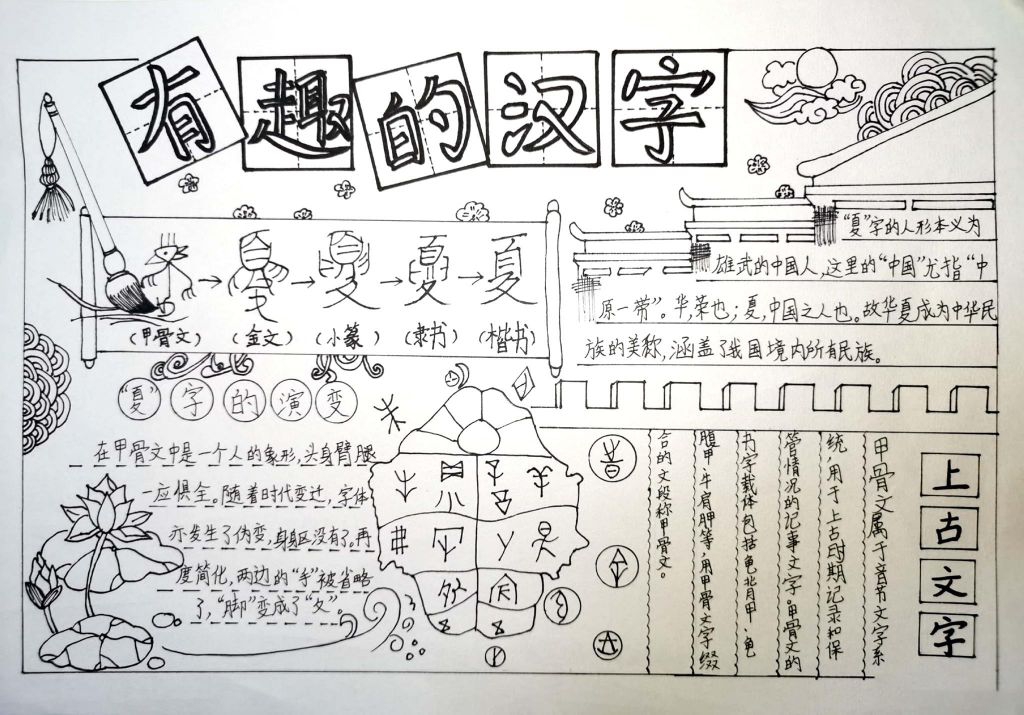 有趣的汉字
(甲骨文) (金文) (小篆) (隶书) (楷书)
夏
"夏"字的人形本义为
雄武的中国人,这里的"中国"尤指"中
原一带"。华,荣也;夏,中国之人也。故华夏成为中华民
族的美称,涵盖了我国境内所有民族。
"夏"字的演变
在甲骨文中是一个人的象形,头身臂腿
一应俱全。随着时代变迁,字体
亦发生了伪变,身躯没有了。再
度简化,两边的"手"被省略
了,"脚"变成了"夂"。
上古文字
甲骨文属于音节文字系
统,用于上古时期记录和保
管情况的记事文字。甲骨文的
书字载体包括龟背甲、龟
腹甲、牛肩胛等,用甲骨文字缀
合的文段称甲骨文。